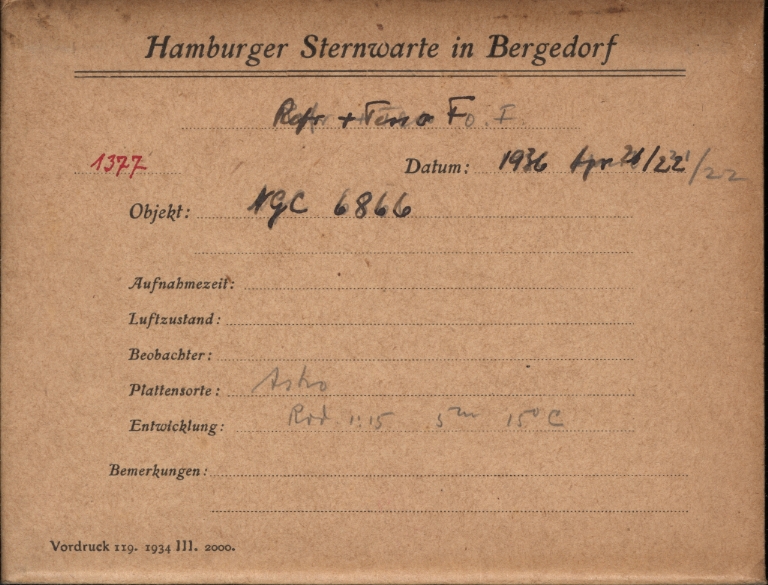 Hamburger Sternwarte in Bergedorf
Refr + F
1377 Datum: 1936 Apr 21/22 /22
Objekt: NGC 6866
Aufnahmezeit:
Luftzustand:
Beobachter:
Plattensorte: Astro
Entwicklung: Rod 1:15 5m 15° C
Bemerkungen:
Vordruck 119. 1934 III. 2000.